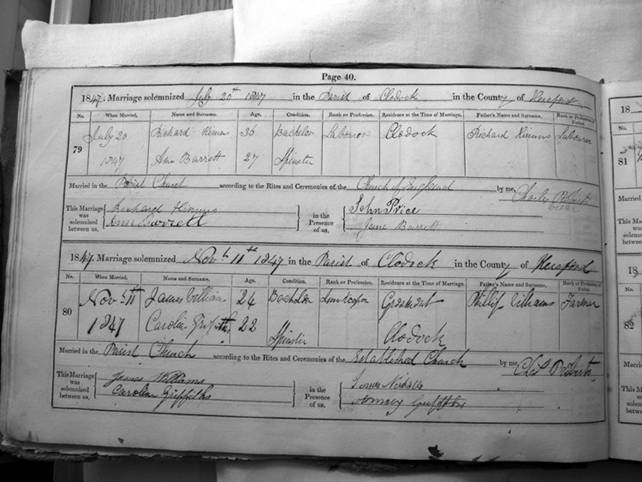 Page 40.
1847. Marriage solemnized July 20th 1847 in the Parish of Clodock in the County of Hereford
No. When Married. Name and Surname. Age. Condition. Rank or Profession. Residence at the Time of Marriage. Father's Name and Surname. Rank or Profession of Father.
79 July 20 Richard 36 Bachelor Labourer Clodock Richard Labourer
1847 Ann Barrett 27 Spinster
Married in the Parish Church according to the Rites and Ceremonies of the Church of England by me,
This Marriage was solemnized between us, Richard in the Presence of us, John Price
Ann Barrett Jane Barrett
1847. Marriage solemnized Novr 11th 1847 in the Parish of Clodock in the County of Hereford
No. When Married. Name and Surname. Age. Condition. Rank or Profession. Residence at the Time of Marriage. Father's Name and Surname. Rank or Profession of Father.
80 Nov. 11 James Williams 24 Bachelor Grosmont Philip Williams Farmer
1847 Caroline Griffiths 22 Spinster Clodock
Married in the Parish Church according to the Rites and Ceremonies of the Established Church by me,
This Marriage was solemnized between us, James Williams in the Presence of us,
Caroline Griffiths Griffiths
18
No.
81
18
No.
82